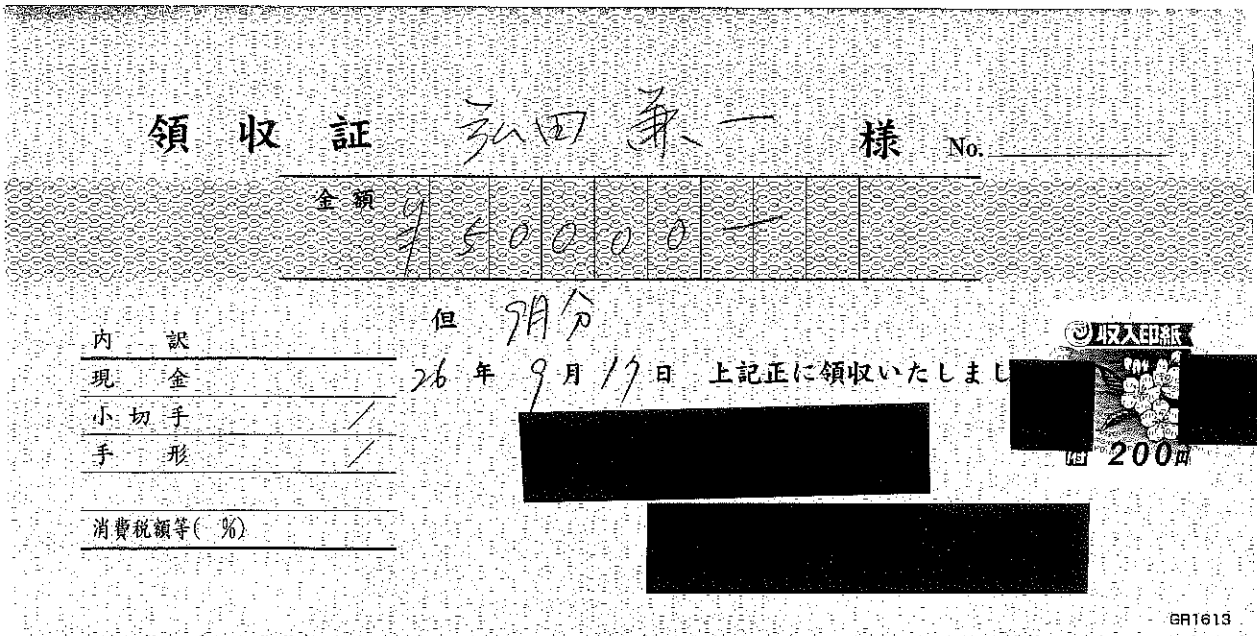 領収証 弘田兼一 様 No.
金額 ¥50000-
但 9月分
内訳
現金
26年9月17日 上記正に領収いたしまし
小切手 /
手形 /
消費税額等( %)
収入印紙
200円
GR1613